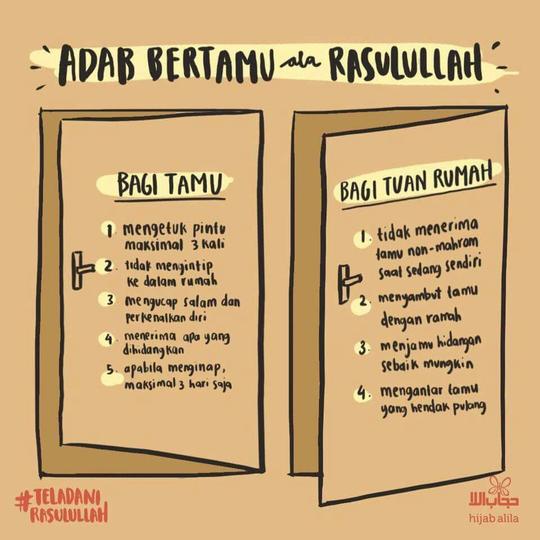 ADAB BERTAMU ala RASULULLAH
BAGI TAMU
1 mengetuk pintu
maksimal 3 kali
2. tidak mengintip
ke dalam rumah
3 mengucap salam dan
perkenalkan diri
4. menerima apa yang
dihidangkan
5. apabila menginap,
maksimal 3 hari saja
BAGI TUAN RUMAH
1. tidak menerima
tamu non-mahrom
saat sedang sendiri
2. menyambut tamu
dengan ramah
3. menjamu hidangan
sebaik mungkin
4. mengantar tamu
yang hendak pulang
#TELADANI
RASULULLAH
hijab alila